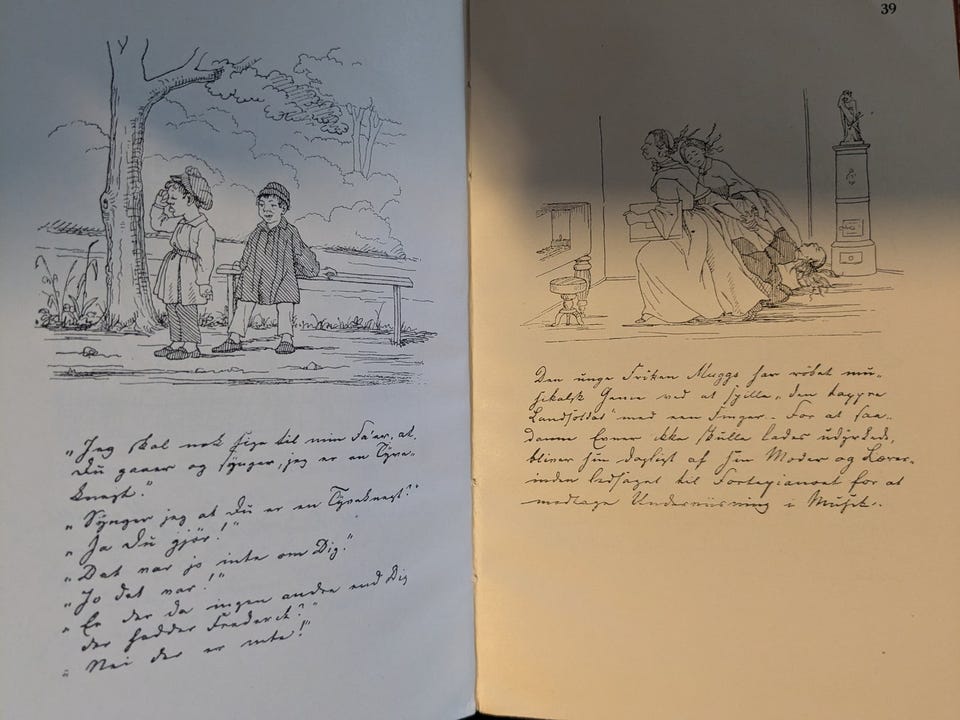 „Jeg skal nok sige til min Fa'er, at
Du gaaer og synger, jeg er en Tyve-
knegt."
„Synger jeg at Du er en Tyveknegt?"
„Ja Du gjør!"
„Det var jo inte om Dig."
„Jo det var!"
„Er der da ingen andre end Dig
der hedder Frederik?"
„Nei der er inte!"
39
Den unge Frøken Muggs har røbet mu-
sikalsk Genie ved at spille „den tappre
Landsoldat" med een Finger. - For at saa-
danne Evner ikke skulle lades udyrkede,
bliver hun dagligt af sin Moder og Lærer-
inden ledsaget til Fortepianoet for at
modtage Underviisning i Musik.